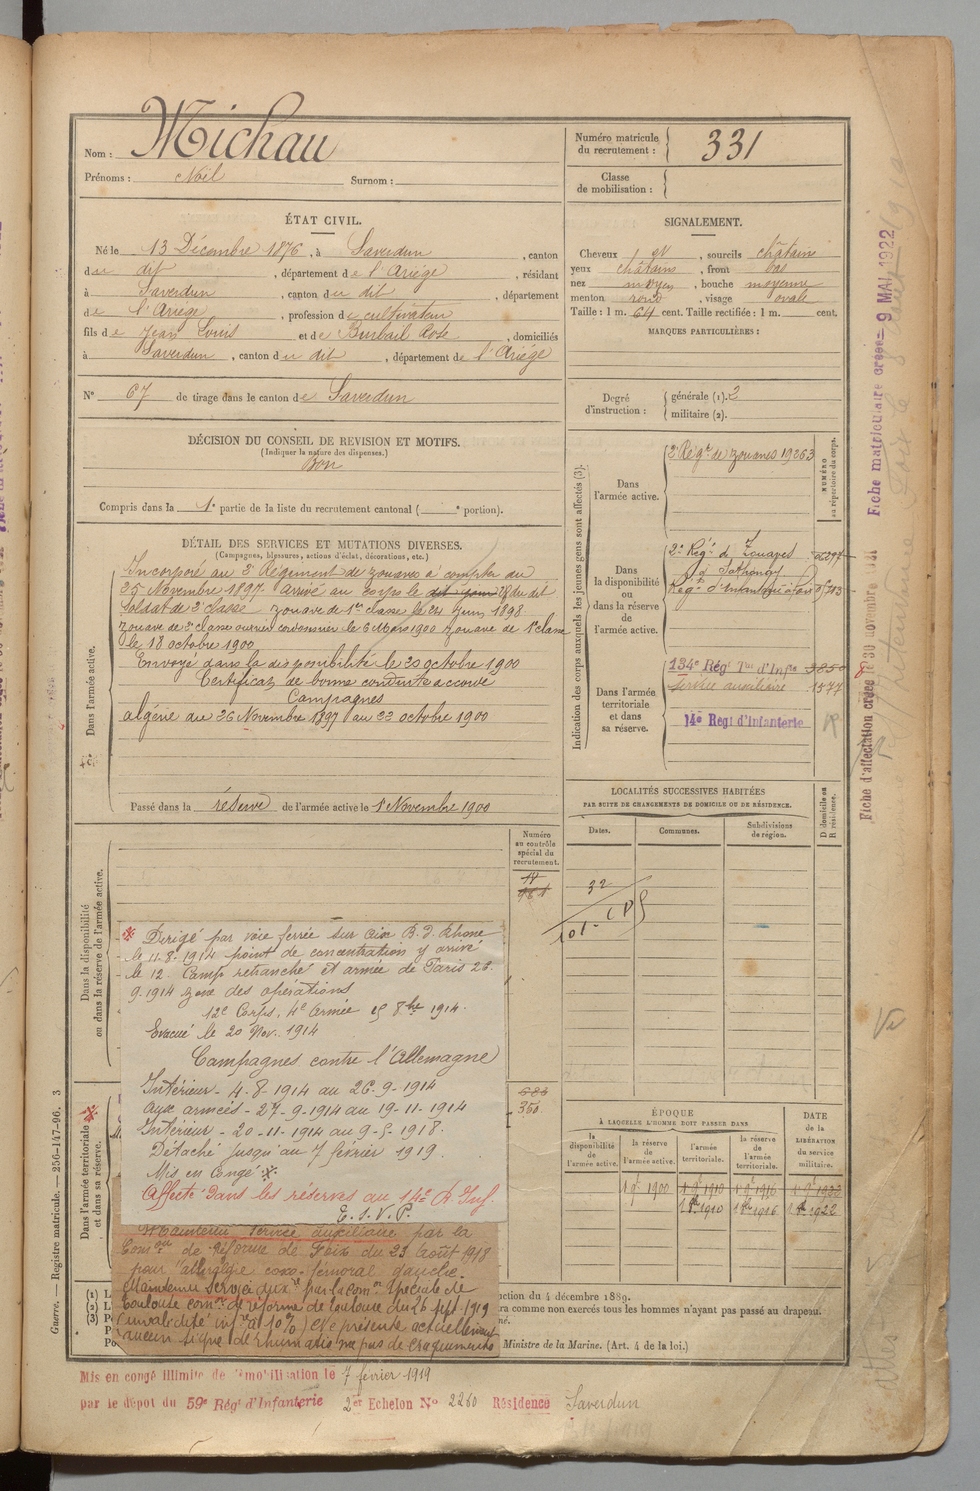 Nom : Michau
Prénoms : Noël Surnom :
Numéro matricule du recrutement : 331
Classe de mobilisation :
ÉTAT CIVIL.
Né le 13 Décembre 1876, à Saverdun, canton
du dit, département de l'Ariège, résidant
à Saverdun, canton du dit, département
de l'Ariège, profession de cultivateur
fils de Jean Louis et de Burbail Rose, domiciliés
à Saverdun, canton du dit, département de l'Ariège
N° 67 de tirage dans le canton de Saverdun
SIGNALEMENT.
Cheveux, sourcils châtains
yeux châtains, front bas
nez moyen, bouche moyenne
menton rond, visage ovale
Taille : 1 m. 64 cent. Taille rectifiée : 1 m. cent.
MARQUES PARTICULIÈRES :
Degré d'instruction : générale (1). 2
militaire (2).
DÉCISION DU CONSEIL DE REVISION ET MOTIFS.
(Indiquer la nature des dispenses.)
Bon
Compris dans la 1e partie de la liste du recrutement cantonal ( e portion).
DÉTAIL DES SERVICES ET MUTATIONS DIVERSES.
(Campagnes, blessures, actions d'éclat, décorations, etc.)
Dans l'armée active.
Incorporé au 2e Régiment de zouaves à compter du
25 Novembre 1897 arrivé au corps le dit jour 28 du dit
Soldat de 2e classe zouave de 1re classe le 21 Juin 1898
zouave de 2e classe ouvrier cordonnier le 6 Mars 1900 zouave de 1e classe
le 18 octobre 1900
Envoyé dans la disponibilité le 20 octobre 1900
Certificat de bonne conduite accordé
Campagnes
algérie du 26 Novembre 1897 au 22 octobre 1900
Passé dans la réserve de l'armée active le 1er Novembre 1900
Indication des corps auxquels les jeunes gens sont affectés (3).
NUMÉRO au répertoire du corps.
Dans l'armée active.
2e Régt de zouaves 19263
Dans la disponibilité ou dans la réserve de l'armée active.
2e Régt de Zouaves
à Sathonay
Régt d'Infanterie à Foix
Dans l'armée territoriale et dans sa réserve.
134e Régt Tal d'Infie
Service auxiliaire 1577
14e Régt d'Infanterie
LOCALITÉS SUCCESSIVES HABITÉES
PAR SUITE DE CHANGEMENTS DE DOMICILE OU DE RÉSIDENCE.
Dates. Communes. Subdivisions de région. D domicile ou R résidence.
Numéro au contrôle spécial du recrutement.
Dans la disponibilité ou dans la réserve de l'armée active.
Dirigé par voie ferrée sur Aix B. d. Rhone
le 11-8-1914 point de concentration y arrivé
le 12. Camp retranché et armée de Paris 26.
9.1914 zone des opérations
12e Corps, 4e Armée 8bre 1914.
Evacué le 20 Nov. 1914
Campagnes contre l'Allemagne
Intérieur - 4-8-1914 au 26-9-1914
aux armées - 27-9-1914 au 19-11-1914
Intérieur - 20-11-1914 au 9-5-1918
Détaché jusqu'au 7 février 1919.
Mis en Congé
Affecté dans les réserves au 14e R. Inf.
T. S. V. P.
Dans l'armée territoriale et dans sa réserve.
683
350
Maintenu Service auxiliaire par la
Comon de Réforme de Foix du 23 août 1918
pour algie coxo-fémoral gauche.
Maintenu service auxre par la comon spéciale de
Toulouse comon de réforme de Toulouse du 26 sept 1919
(invalidité infre à 10%) Ne présente actuellement
aucun signe de rhumatisme pas de craquements
ÉPOQUE
À LAQUELLE L'HOMME DOIT PASSER DANS
la disponibilité de l'armée active. la réserve de l'armée active. l'armée territoriale. la réserve de l'armée territoriale.
DATE de la LIBÉRATION du service militaire.
1 9e 1900 1 9e 1910 1 9e 1916 1 9e 1922
1 8e 1910 1 8e 1916 1 8e 1922
ction du 4 décembre 1889.
ra comme non exercés tous les hommes n'ayant pas passé au drapeau.
Ministre de la Marine. (Art. 4 de la loi.)
Guerre. — Registre matricule. — 256-147-96. 3
Mis en congé illimité de démobilisation le 7 février 1919
par le dépot du 59e Régt d'Infanterie 2er Echelon No 2260 Résidence Saverdun
Fiche matriculaire créée 9 MAI 1922
Fiche d'affectation créée le 30 novembre